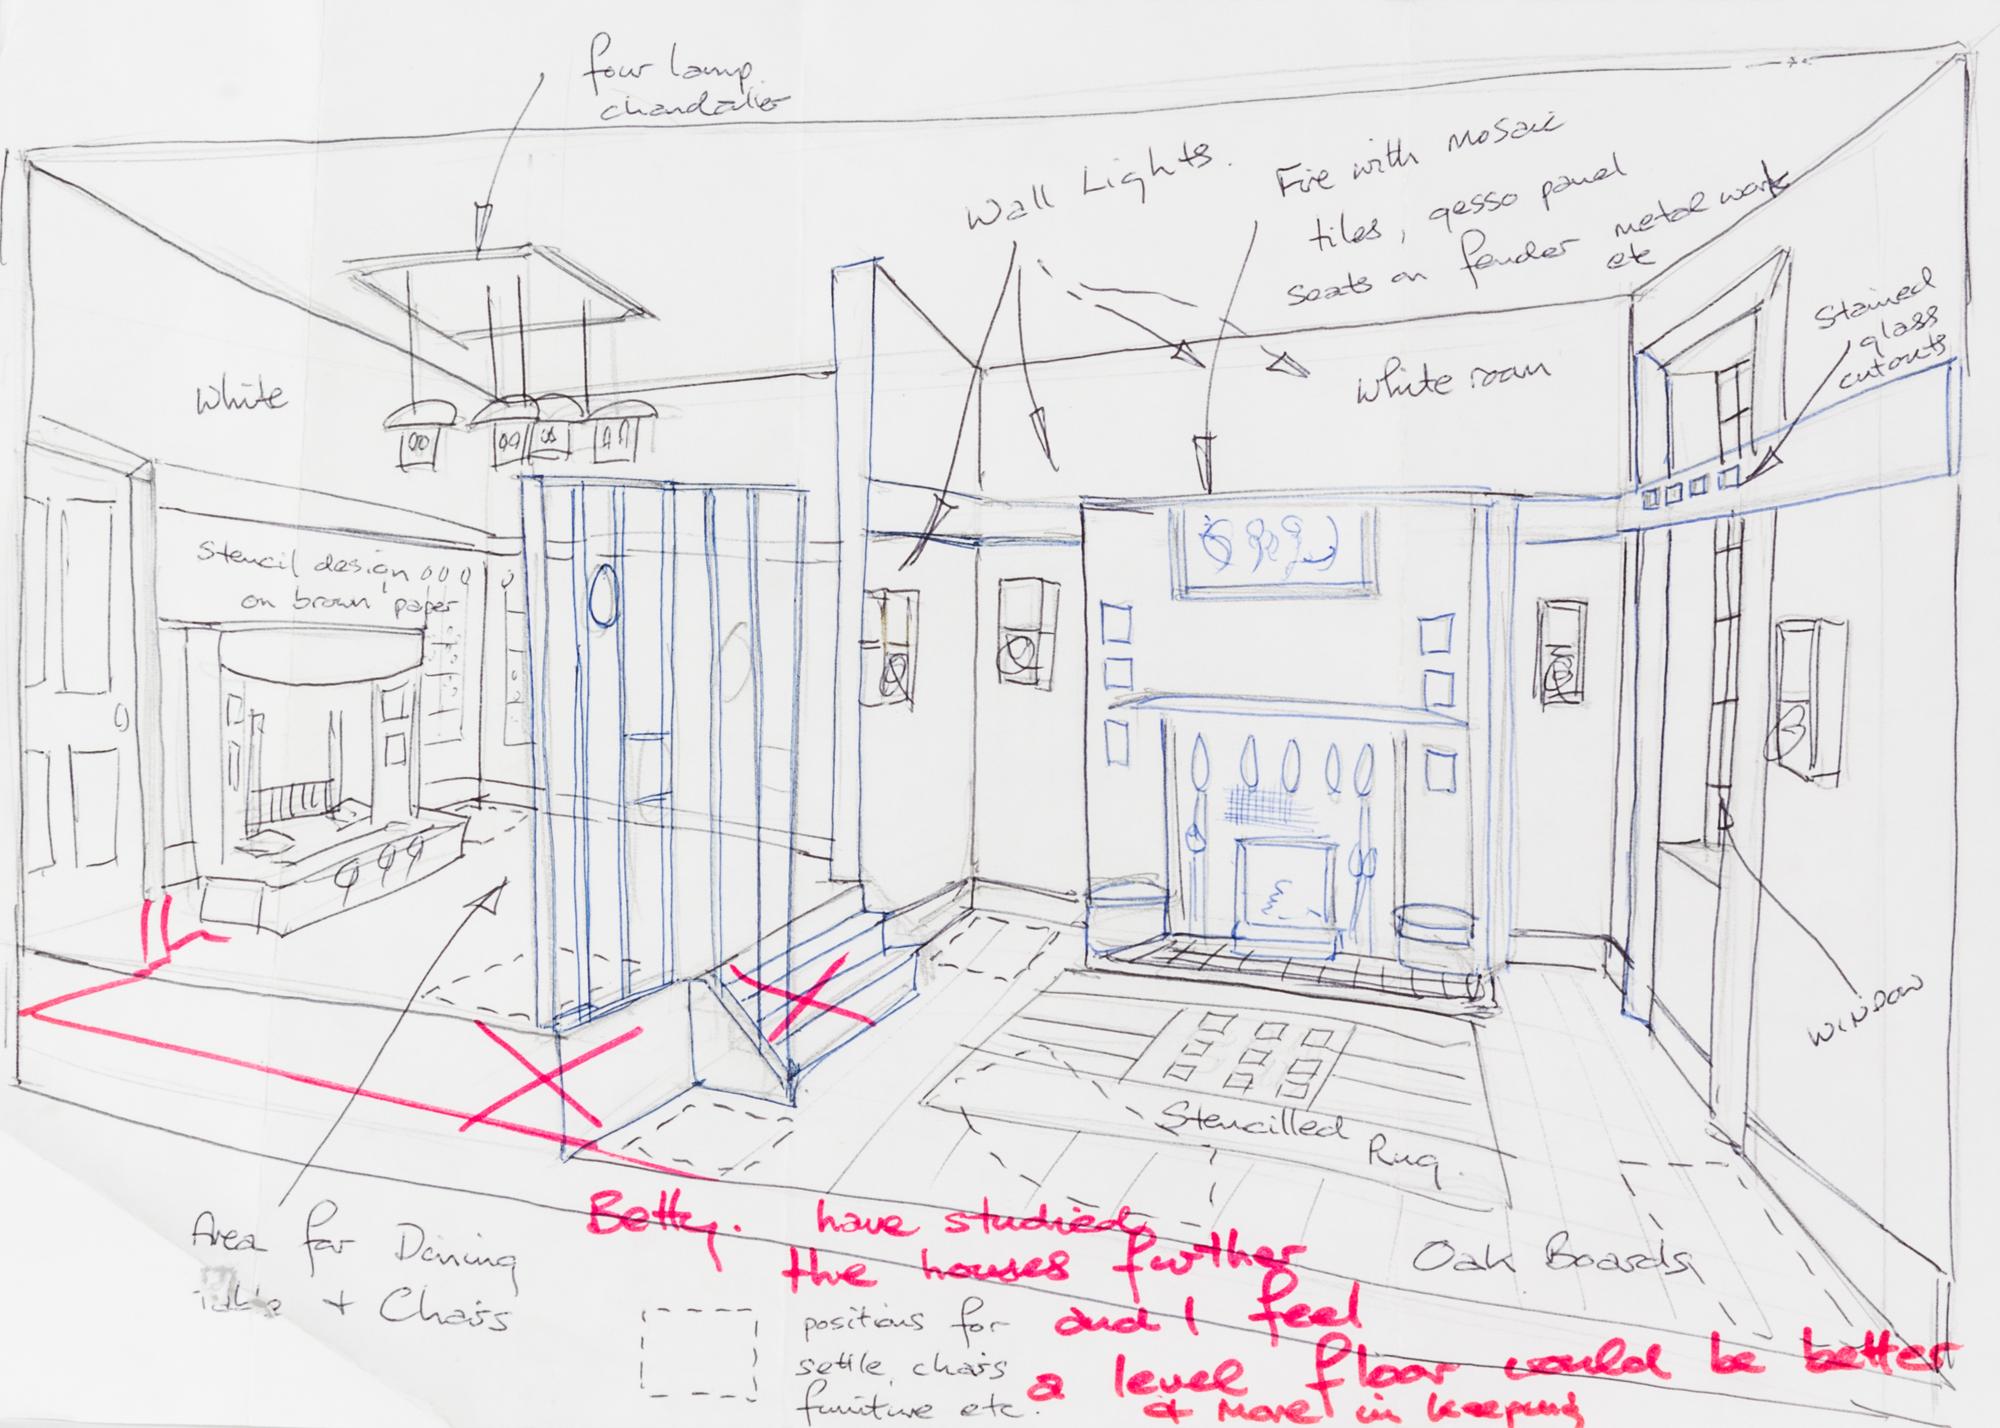 four lamp
chandalier
Wall Lights.
Fire with mosaic
tiles, gesso panel
seats on fender metal work
etc
Stained
glass
cutouts
White
White room
Stencil design
on brown paper
WINDOW
Stencilled
Rug.
Oak Boards
Area for Dining
table + Chairs
positions for
settle, chairs
furniture etc.
Betty. have studied
the houses further
and I feel
a level floor would be better
& more in keeping